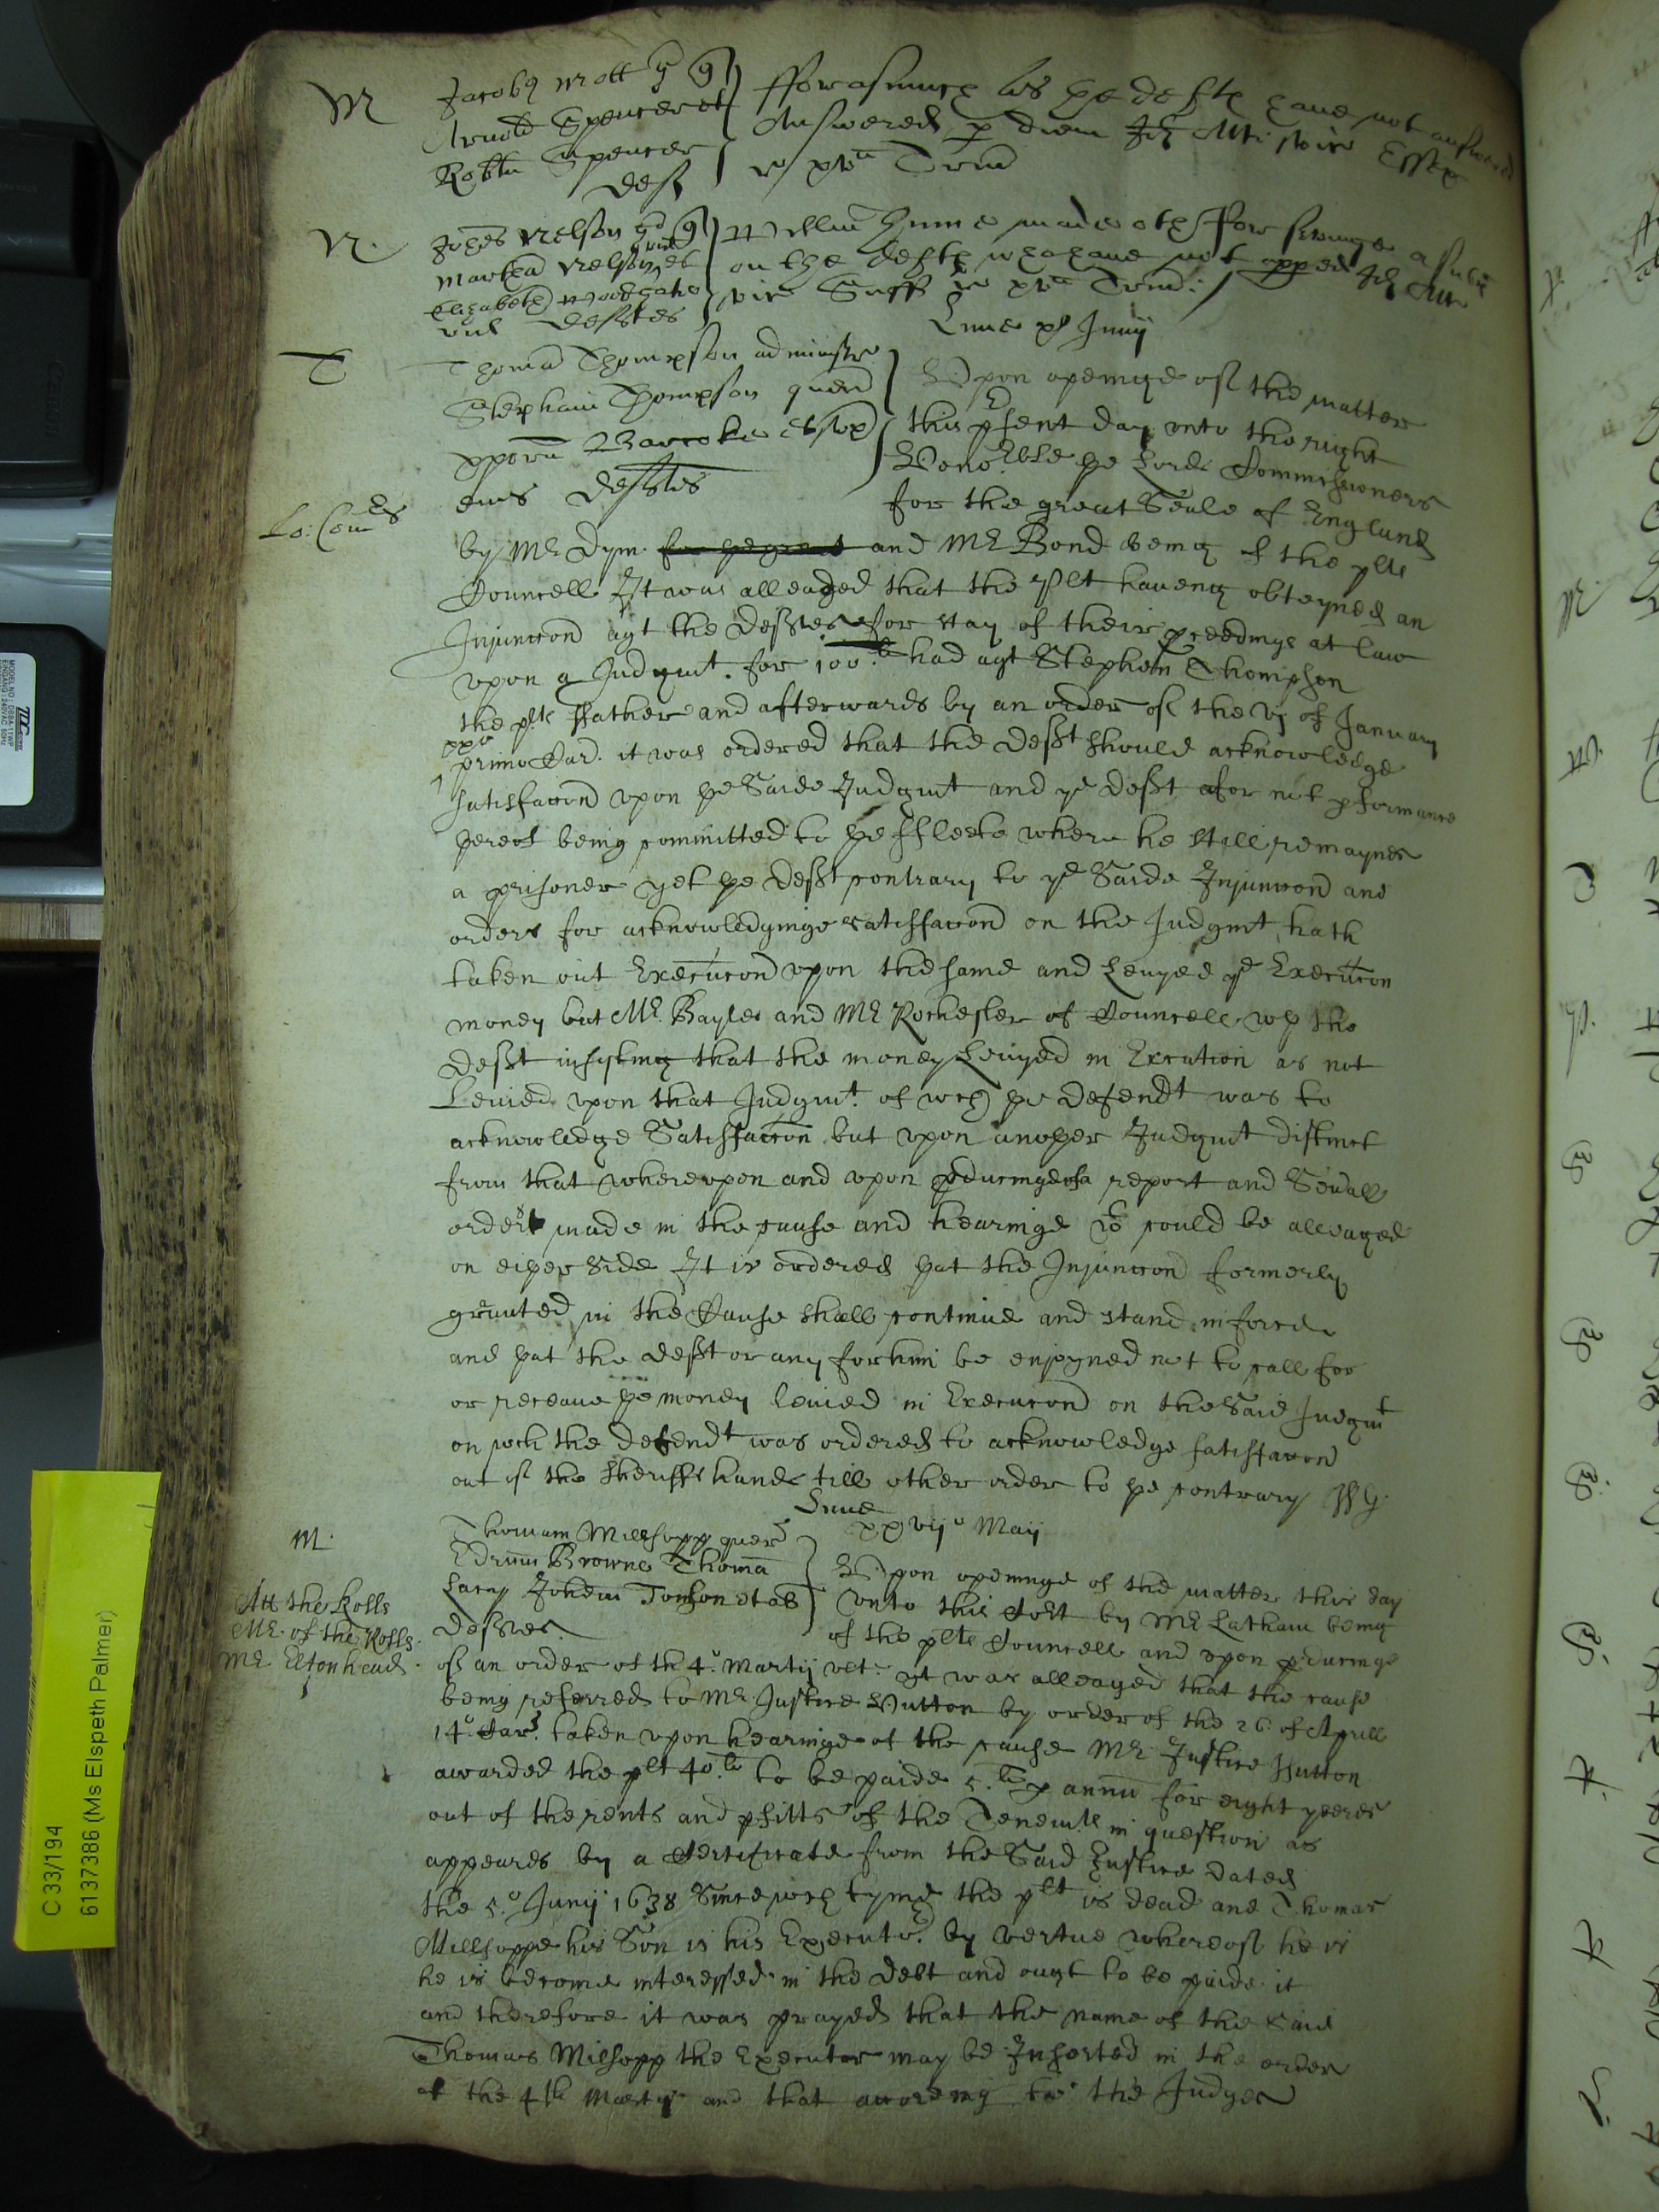 M
Jacob9 Mott q 9
Arnold Spencer et
Robtu Spencer
def
fforasmuch as the deftes haue not answered
Answered p diem Jo: Att vic Essex
r pxe Trin
N.
Johes Nelson
Martha Nelson vid et
Elizabeth Woodgate
vid deftes
Willm made oth for servinge a subp
on the deftes who haue not apped Jo: Att
vic Suff r pxe Trin:
Lune pº Junij
T
Thoma Thompson administr
Stephani Thompson quer
eius deftes
Vpon openinge of the matter
this psent day vnto the right
Honoble the Lords Commissioners
Lo: Comrs
for the great Seale of England
by Mr Dym. for the great and Mr Bond being of the plts
Councell It was alleaged that the plt haueng obteyned an
Injuncon agt the deftes for stay of their pceedings at law
vpon a Judgmt. for 100li had agt Stephen Thompson
the plts ffather and afterwards by an order of the vj of January
primo Car. it was ordered that the deft should acknowledge
satisfaccon vpon the Saide Judgmt and ye deft for not pformance
thereof being committed to the ffleete where he still remaynes
a prisoner yet the deft contrary to ye Saide Injuncon and
orders for acknowledginge satisfaccon on the Judgmt hath
taken out Execucon vpon the same and Leuyed ye Execucon
money but Mr. Bayles and Mr Rochester of Councell wth the
deft insisting that the money Leuyed in Excution as not
Leuied vpon that Judgmt. of wch the defendt was to
acknowledge Satisfaccon but vpon another Judgmt distinct
from that wherevpon and vpon pducinge of a report and Seuall
orders made in the cause and hearinge wt could be alleaged
on either side It is ordered that the Injuncon formerly
graunted in the Cause shall continue and stand in force
and that the deft or any for him be enjoyned not to call for
or receaue the money leuied in Execucon on the Said Judgmt
on wch the defendt was ordered to acknowledge satisfaccon
out of the Sheriffs hands till other order to the contrary
Lune
xxvijº Maij
M.
Thomam Millsopp quer
Edrum Browne Thoma
Lacy Johem Tonson et al
deftes
Vpon openinge of the matter this day
vnto this Cort by Mr Latham being
of the plts Councell and vpon pducinge
Att the Rolls
Mr. of the Rolls.
Mr Eltonhead.
of an order of th 4º Martij vlt: yt was alleaged that the cause
being referred to Mr. Justice Hutton by order of the 26 of Aprill
14º Cars. taken vpon hearinge of the cause Mr Justice Hutton
awarded the plt 40li to be paide 5.li p annu for eight yeeres
out of the rents and pfitts of the Tenemts in question as
appeares by a Certificate from the Said Justice dated
the 5º Junij 1638 Since wch tyme the plt is dead and Thomas
Millsoppe his Son is his Executor. by vertue whereof he is
he is become interessed in the debt and ougt to be paide it
and therefore it was prayed that the name of the Said
Thomas Milsopp the Executor may be Inserted in the order
of the 4th Martij and that according to the Judges
C 33/194
6137386 (Ms Elspeth Palmer)